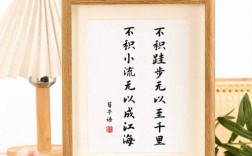 不积跬步无以至千里
不积小流无以成江海
荀子语